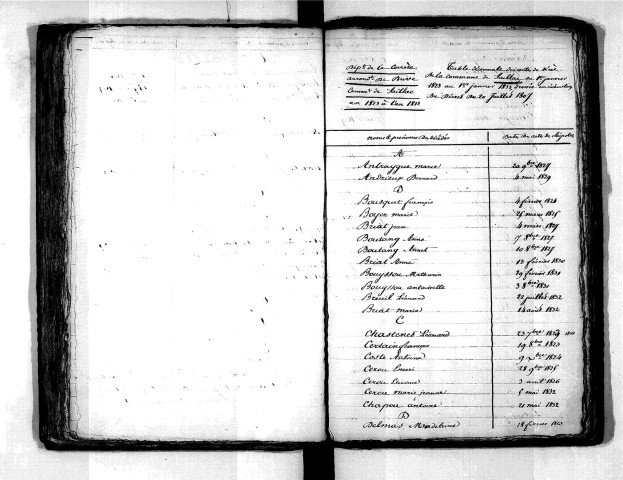 Dépt. de la Corrèze
arrondt. de Brive
Commne. de
an 1823 à l'an 1832
Table décennale des actes de décès
de la commune de du 1er janvier
1823 au 1er janvier 1833, dressée en exécution
du Décret du 20 Juillet 1807
noms & prénoms des décédés
Date des actes des Registres
A
Antraygue marie
20 9bre 1825
Andrieux Bernard
4 mai 1829
B
Bousquet françois
4 février 1824
Boyer marie
25 mars 1825
Briat jean
4 mars 1825
Boutang Anne
7 8bre 1825
Boutang
10 8bre 1825
Briat Anne
13 février 1830
Bouyssou Mathurin
29 février 1831
Bouyssou antoinette
3 8bre 1831
Breuil Léonard
22 juillet 1832
Briat marie
14 août 1832
C
Chastenet Léonard
23 7bre 1829
Certain françois
19 8bre 1823
Coste Antoine
9 xbre 1824
Cerou
28 9bre 1825
Cerou
3 avril 1826
Cerou marie jeanne
5 mai 1832
Chapou antoine
21 mai 1832
D
Delmas Magdeleine
18 février 1823